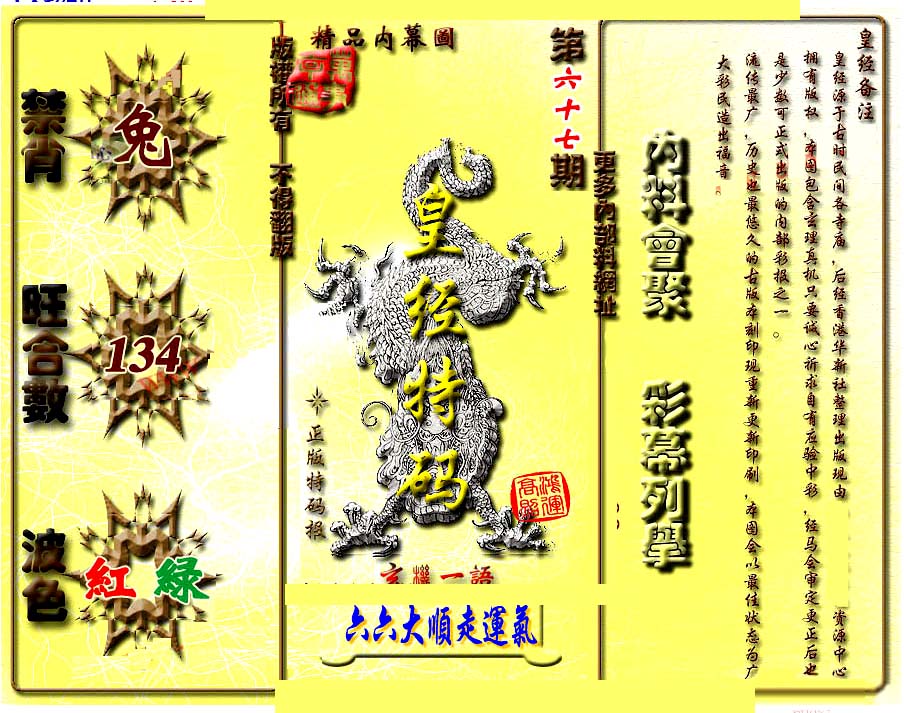 皇经备注
皇经源于古时民间各寺庙，后经香港华新社整理出版现由
资源中心
拥有版权，本图包含玄理真机只要诚心祈求自有应验中彩，经马会审定更正后也
是少数可正式出版的内部彩报之一。
流传最广，历史也最悠久的古版本刻印现重新更新印刷，本图会以最佳状态为广
大彩民造出福音
內料會聚
彩幕列舉
更多內部料網址
第六十七期
精品内幕圖
皇经特码
正版特码报
鴻運高照
玄機一語
六六大順走運氣
版權所有
不得翻版
禁肖
兔
旺合數
134
波色
紅 綠